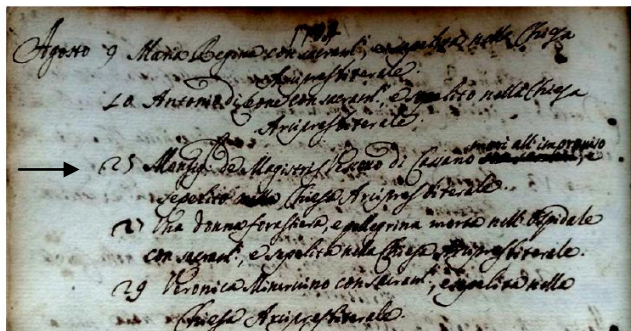 Agosto 9 Maria Regina con sacram.ti, e sepelita nella Chiesa
Arcipresbiterale
10 Antonio di Leone con sacram.ti, e sepelito nella Chiesa
Arcipresbiterale.
25 Monsig.r de Magistris Vescovo di Cassano morì all'improviso, e
sepelito nella Chiesa Arcipresbiterale.
27 Una donna forastiera, e pellegrina morta nell'Ospidale
con sacram.ti, e sepelita nella Chiesa Arcipresbiterale.
29 Veronica Minervino con sacram.ti, e sepelita nella
Chiesa Arcipresbiterale.